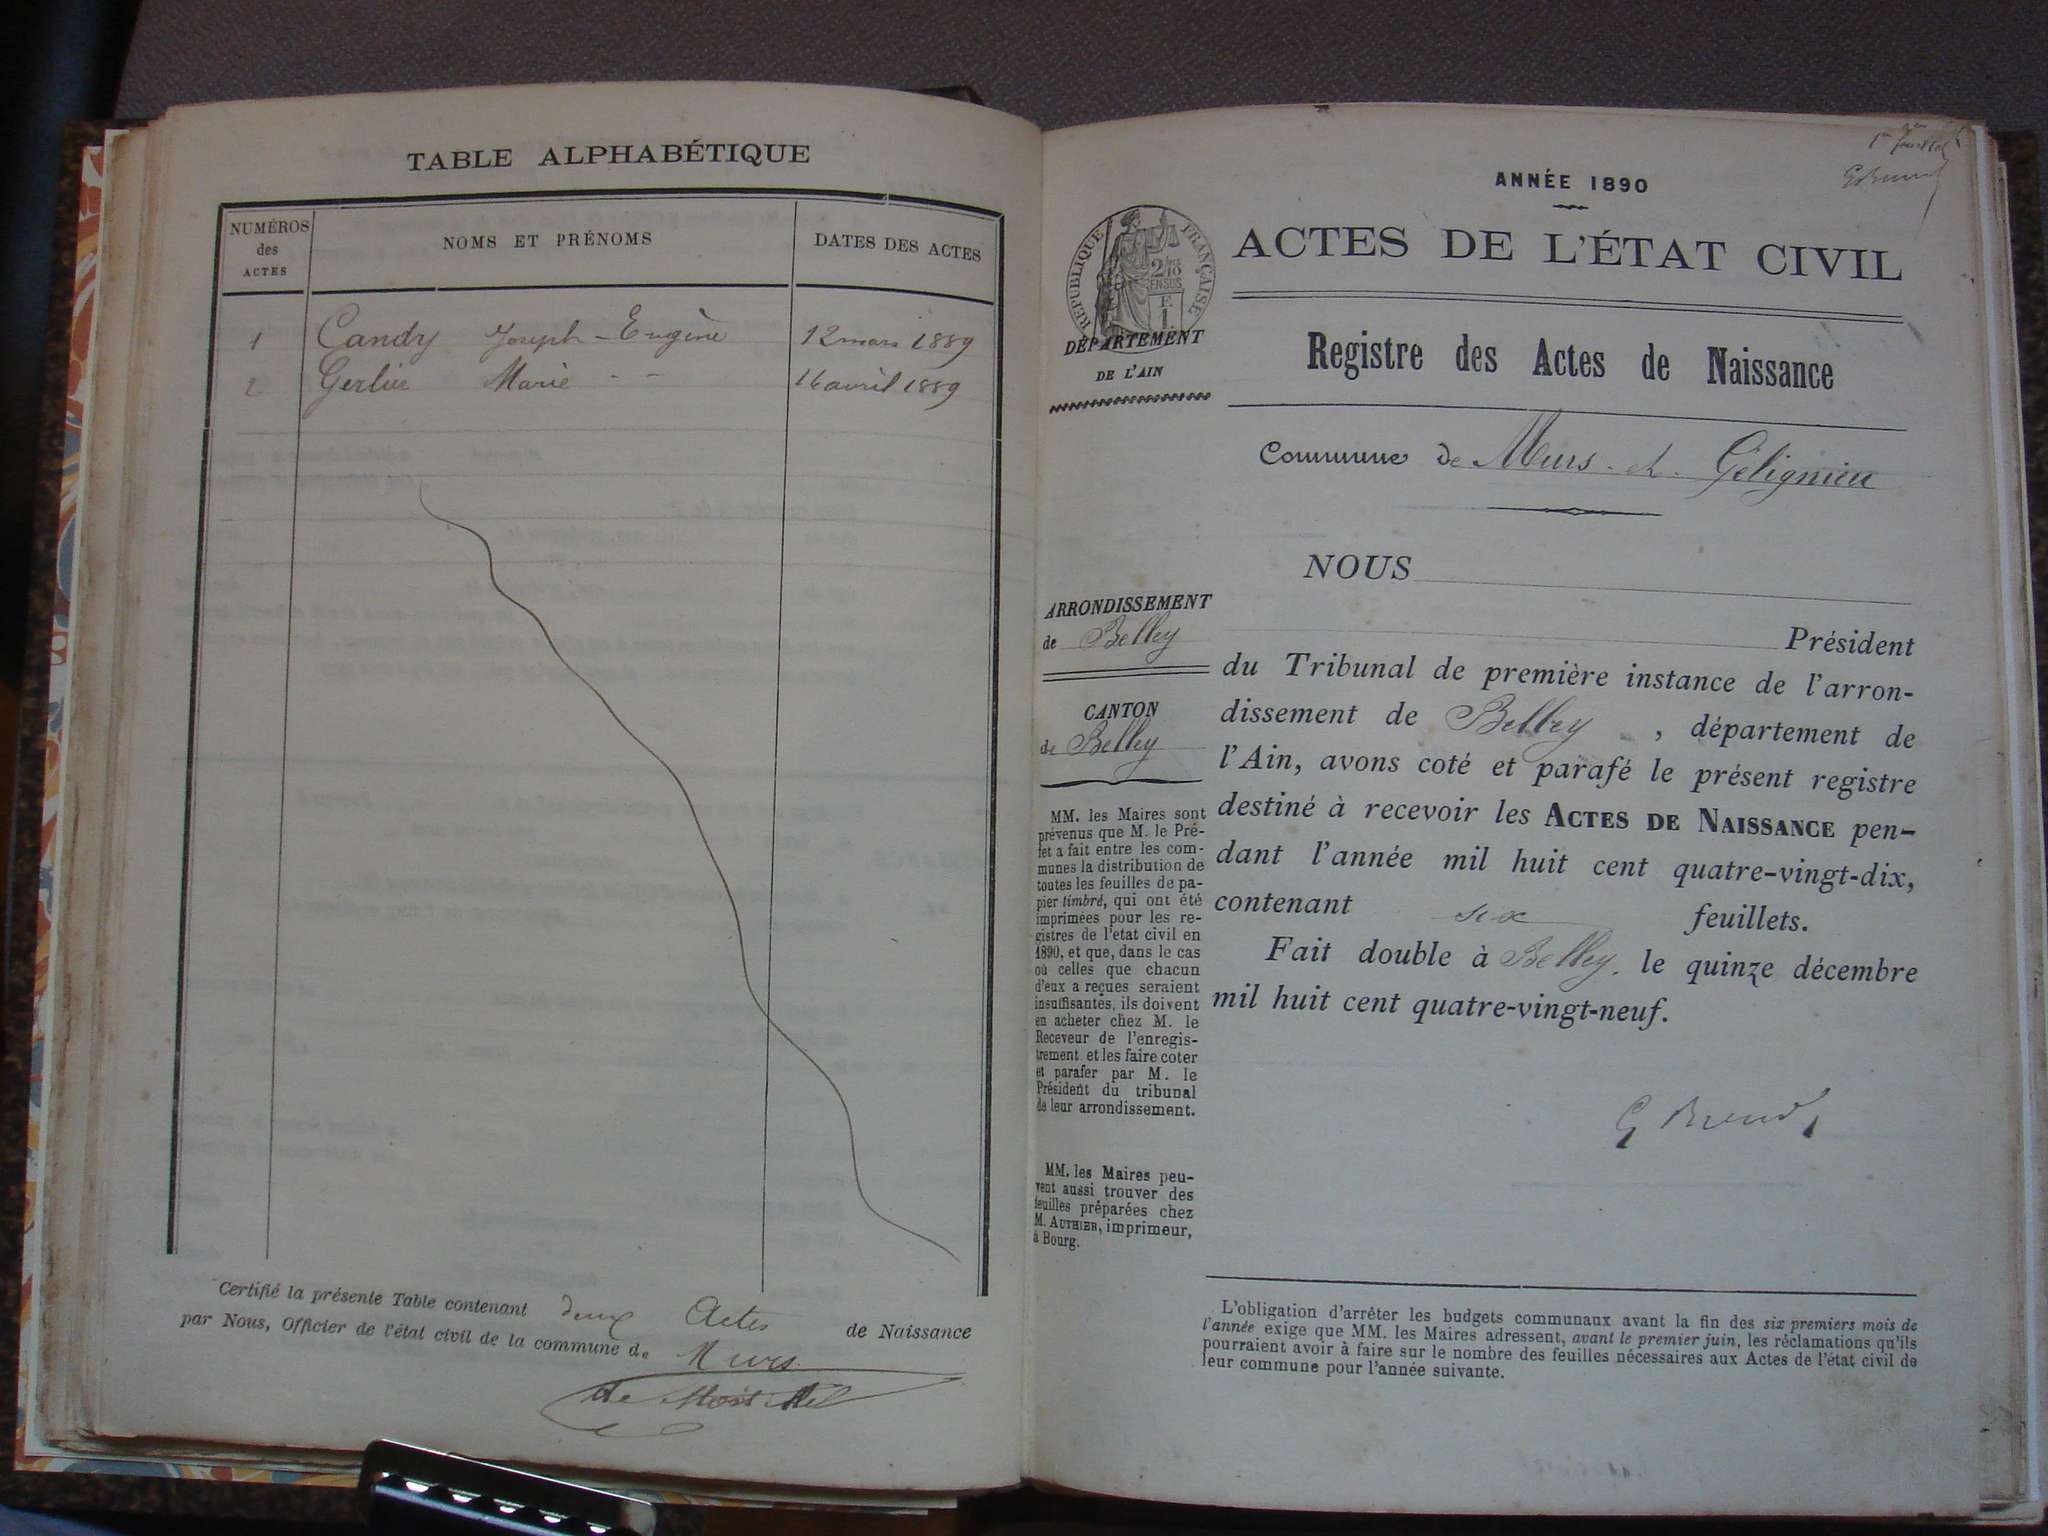 TABLE ALPHABÉTIQUE
NUMÉROS
des
ACTES
NOMS ET PRÉNOMS
DATES DES ACTES
1 Candy Joseph-Eugène 12 mars 1889
2 Marie 16 avril 1889
Certifié la présente Table contenant deux Actes de Naissance
par Nous, Officier de l'état civil de la commune de Murs
ANNÉE 1890
RÉPUBLIQUE FRANÇAISE
ACTES DE L'ÉTAT CIVIL
DÉPARTEMENT
DE L'AIN
Registre des Actes de Naissance
Commune de Murs et Gélignieu
ARRONDISSEMENT
de Belley
CANTON
de Belley
MM. les Maires sont
prévenus que M. le Pré-
fet a fait entre les com-
munes la distribution de
toutes les feuilles de pa-
pier timbré, qui ont été
imprimées pour les re-
gistres de l'etat civil en
1890, et que, dans le cas
où celles que chacun
d'eux a reçues seraient
insuffisantes, ils doivent
en acheter chez M. le
Receveur de l'enregis-
trement et les faire coter
et parafer par M. le
Président du tribunal
de leur arrondissement.
MM. les Maires peu-
vent aussi trouver des
feuilles préparées chez
M. AUTHIER, imprimeur,
à Bourg.
NOUS
Président
du Tribunal de première instance de l'arron-
dissement de Belley, département de
l'Ain, avons coté et parafé le présent registre
destiné à recevoir les ACTES DE NAISSANCE pen-
dant l'année mil huit cent quatre-vingt-dix,
contenant six feuillets.
Fait double à Belley, le quinze décembre
mil huit cent quatre-vingt-neuf.
L'obligation d'arrêter les budgets communaux avant la fin des six premiers mois de
l'année exige que MM. les Maires adressent, avant le premier juin, les réclamations qu'ils
pourraient avoir à faire sur le nombre des feuilles nécessaires aux Actes de l'état civil de
leur commune pour l'année suivante.